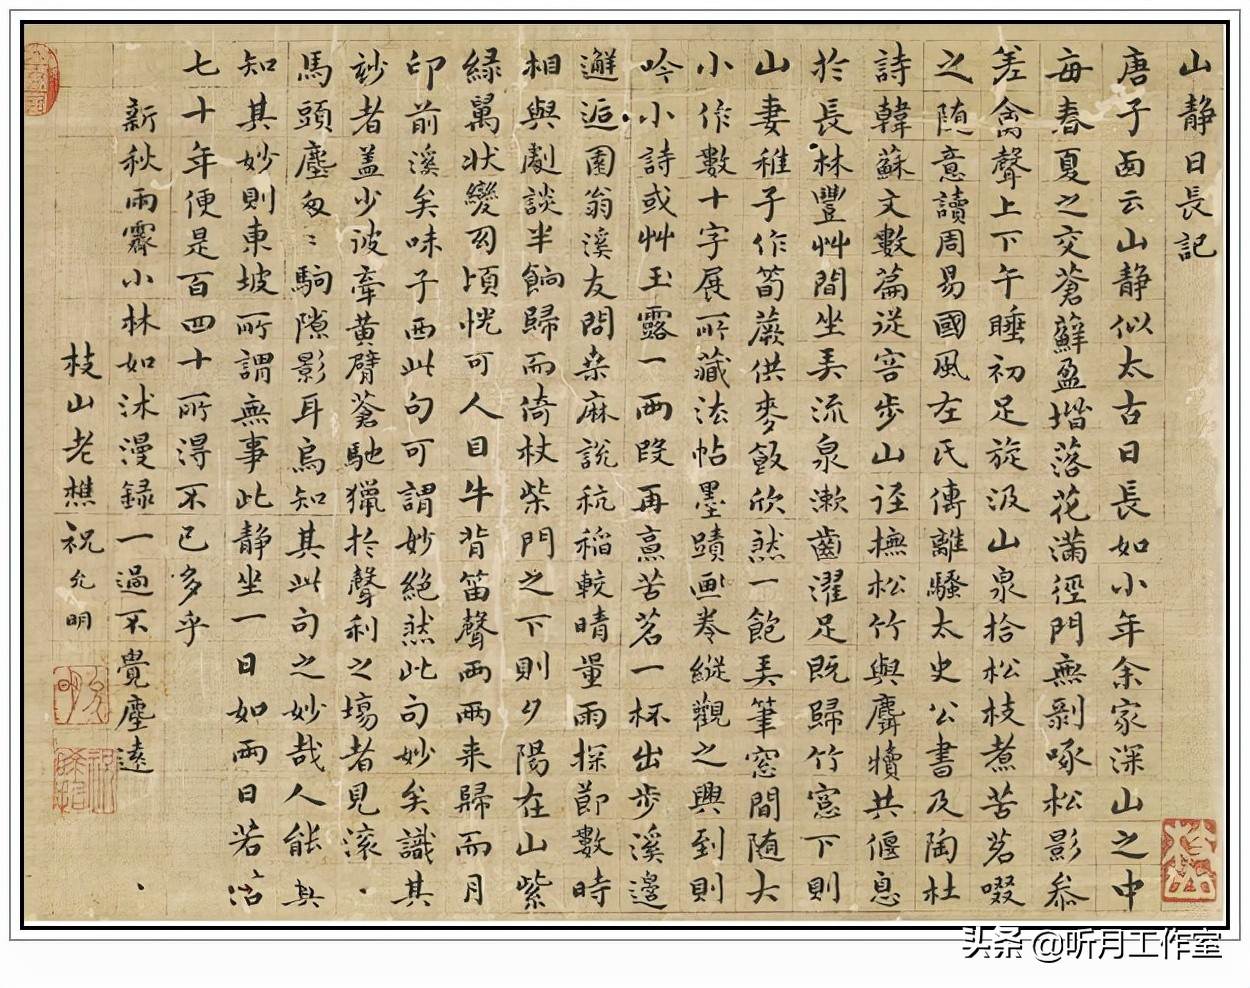 山靜日長記
唐子西云山靜似太古日長如小年余家深山之中
每春夏之交蒼蘚盈堦落花滿徑門無剝啄松影參
差禽聲上下午睡初足旋汲山泉拾松枝煮苦茗啜
之隨意讀周易國風左氏傳離騷太史公書及陶杜
詩韓蘇文數篇從容步山逕撫松竹與麛犢共偃息
於長林豐艸間坐弄流泉漱齒濯足既歸竹窓下則
山妻稚子作筍蕨供麥飯欣然一飽弄筆窓間隨大
小作數十字展所藏法帖墨蹟画卷縱觀之興到則
吟小詩或艸玉露一兩段再烹苦茗一杯出步溪邊
邂逅園翁溪友問桒麻說秔稻較晴量雨探節數時
相與劇談半餉歸而倚杖柴門之下則夕陽在山紫
綠萬状變幻頃恍可人目牛背笛聲兩兩来歸而月
印前溪矣味子西此句可謂妙絕然此句妙矣識其
玅者盖少彼牽黃臂蒼馳獵於聲利之場者見滾丶
馬頭塵匆〻駒隙影耳烏知其此句之妙哉人能真
知其妙則東坡所謂無事此靜坐一日如兩日若活
七十年便是百四十所得不已多乎
新秋雨霽小林如沐漫録一過不覺塵遠
枝山老樵祝允明
头条 @听月工作室